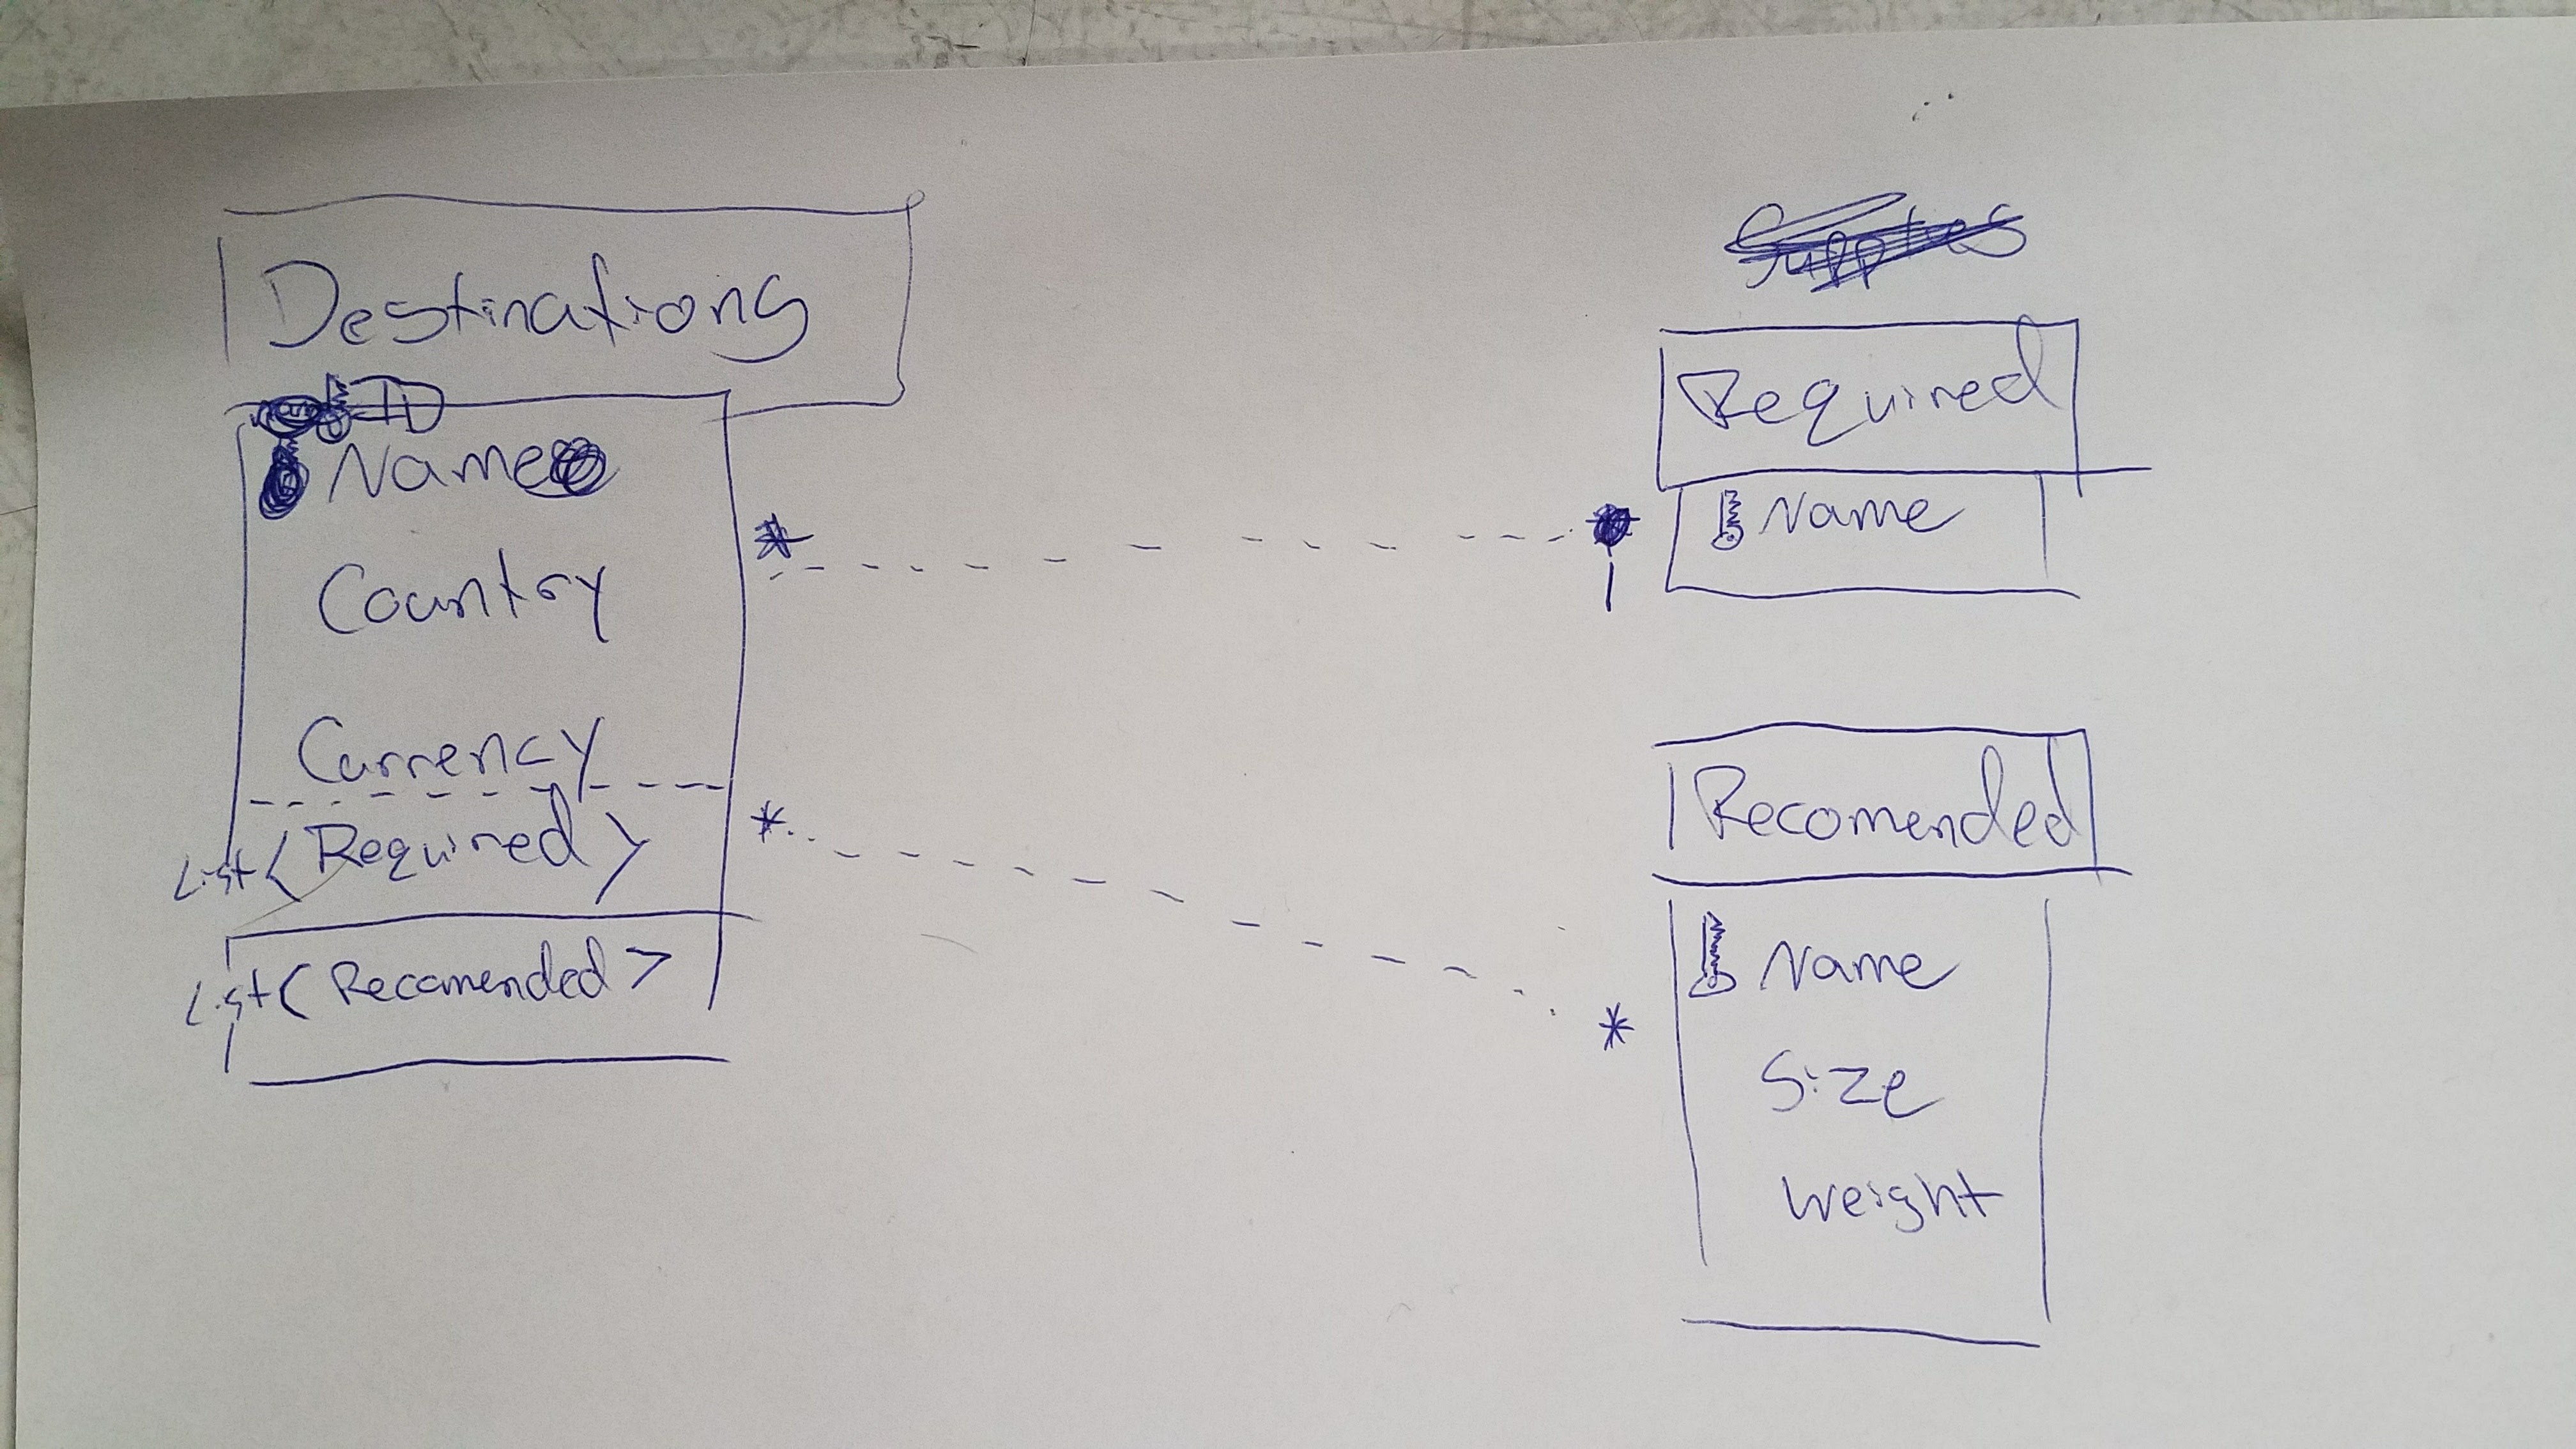 Destinations
ID
Name
Country
Currency
List<Required>
List<Recomended>
*
*
Required
Name
1
Recomended
Name
Size
Weight
*